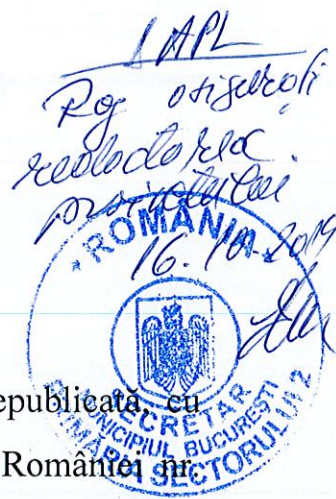 SAPL
Rog asigurați
redactarea
proiectului
16.10.2019
ROMÂNIA
SECRETAR
MUNICIPIUL BUCUREȘTI
PRIMĂRIA SECTORULUI 2
epublicată, cu
României nr.